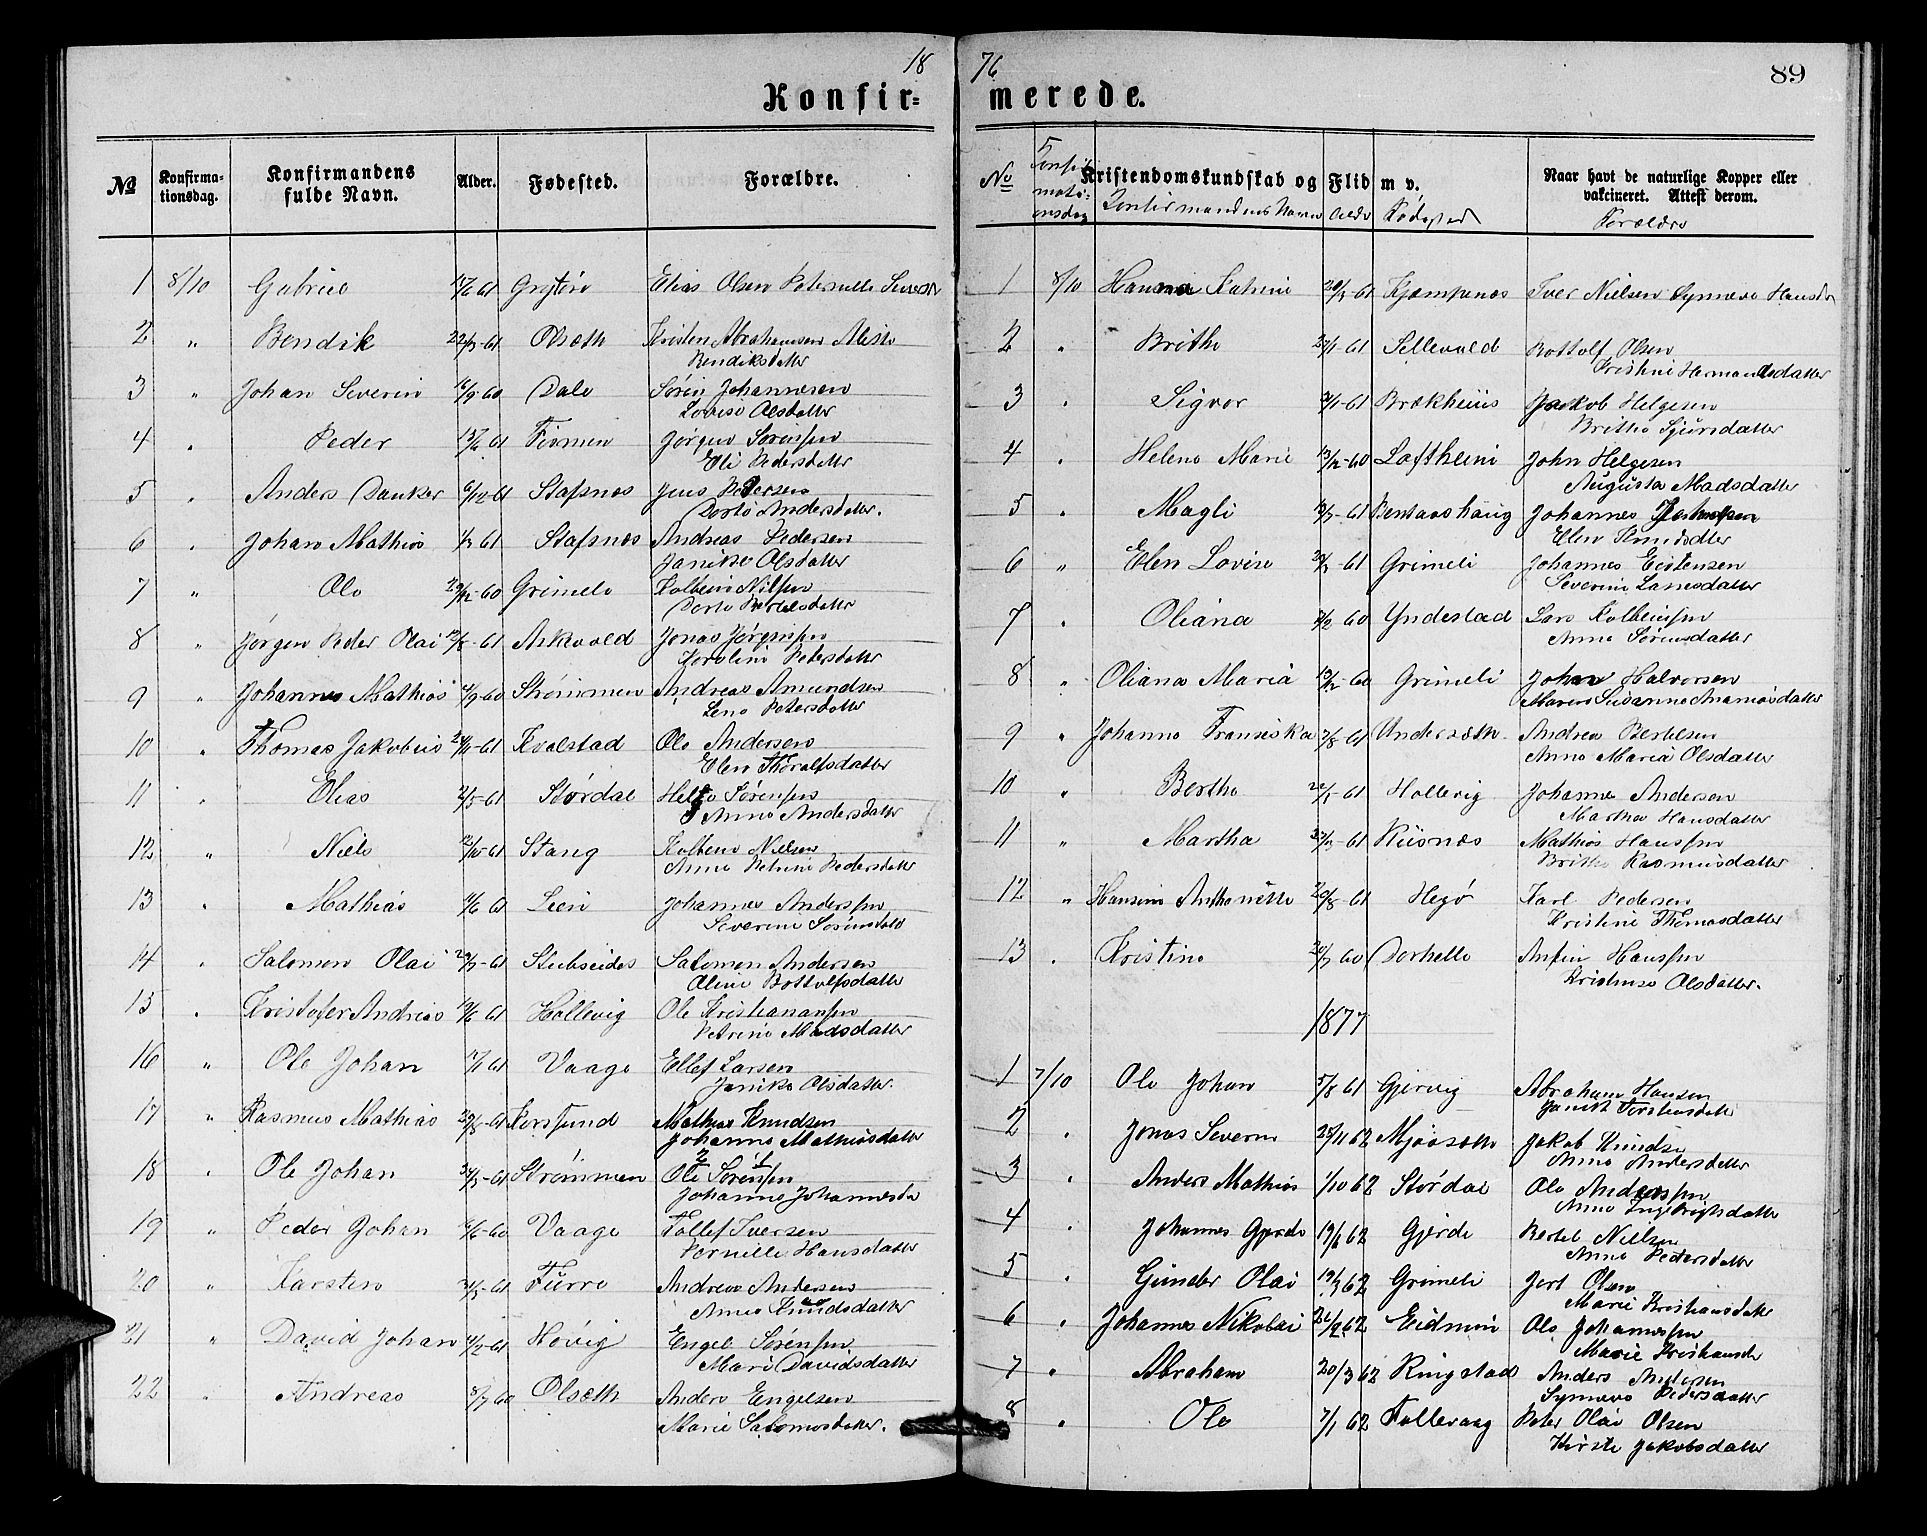 18 76
89
Konfir- merede.
№ Konfirma-tionsdag. Konfirmandens fulde Navn. Alder. Fødested. Forældre.
1 8/10 Gabriel 61 Grytøre Elias Olsen Peternelle
2 " Bendik 61 Olsæth Kristen Abrahamsen
Bendiksdatter
3 " Johan Severin 60 Dale Søren Johannesen
Lovise Olsdatter
4 " Peder 61 Jørgen Sørensen
Eli Pedersdatter
5 " Anders Danker 61 Stafsnes Jens Pedersen
Dorte Andersdatter.
6 " Johan Mathias 61 Stafsnes Andreas Pedersen
Janike Olsdatter
7 " Ole 29/12-60 Grimele Kolbein Nilsen
Dorte Bertelsdatter
8 " Jørgen Peder Olai 61 Askvold Jonas Jørgensen
Karoline Petersdatter
9 " Johannes Mathias 60 Strømmen Andreas Amundsen
Lene Petersdatter
10 " Thomas Jakobus 61 Kvalstad Ole Andersen
Elen Thoralfsdatter
11 " Elias 61 Størdal Helge Sørensen
Anne Andersdatter
12 " Niels 61 Stang Kolbein Nielsen
Anne Petrine Pedersdatter
13 " Mathias 61 Johannes Andersen
Severine Sørensdatt
14 " Salomon Olai 61 Stubseides Salomon Andersen
Oline Bottolfsdatter
15 " Kristofer Andreas 61 Hellevig Ole Kristiansen
Petrine Madsdatter
16 " Ole Johan 61 Vaage Ellef Larsen
Janike Olsdatter.
17 " Rasmus Mathias 61 Korssund Mathias Knudsen
Johanne Mathiasdatter
18 " Ole Johan 61 Strømmen Ole Sørensen
Johanne Johannesda
19 " Peder Johan 60 Vaage Tollef Iversen
Pernille Hansdatter
20 " Karsten 61 Furre Andreas Andersen
Anne Knudsdatter
21 " David Johan 61 Høvig Engel Sørensen
Mari Davidsdatter
22 " Andreas 8/7 60 Olsæth Anders Engelsen
Marie Salomosdatter.
№ Konfirmationsdag Kristendomskundskab og Flid m v. Naar havt de naturlige Kopper eller vakcineret. Attest derom.
Konfirmandens Navn Alder Fødested Forældre
1 8/10 Hanna Katrine 61 Kjempenes Iver Nielsen Synneve Hansdr
2 " Brithe 61 Sellevold Bottolf Olsen
Kristine Hermandsdatter
3 " Sigvor 61 Brekheiis Jakob Helgesen
Brithe Sjursdatter
4 " Helene Marie 13/12-60 Loftheim John Helgesen
Augusta Madsdatter
5 " Magli 61 Johannes
Elen Knudsdtter
6 " Elen Lovise 61 Grimeli Johannes Eistensen
Severine Larsdatter
7 " Oliana 60 Yndestad Lars Kolbeinsen
Anne Sørensdatter
8 " Oliana Maria 60 Grimeli John Halvorsen
Maren Susanne Ananiasdatter
9 " Johanne Franciska 61 Undersæth Andreas Bertelsen
Anne Maria Olsdatter
10 " Berthe 61 Hellevig Johannes Andersen
Martha Hansdatter
11 " Martha 61 Riisnæs Mathias Hanssen
Brithe Rasmusdatter
12 " Hansine Anthonette 20/8-61 Hegø Karl Pedersen
Kristine Thomasdatter
13 " Kristine 60 Dorhelle Anfin Hanssen
Kristense Olsdatter.
1877
1 7/10 Ole Johan 5/8 61 Gjervig Abraham Hansen
Janike
2 " Jonas Severin 25/11 62 Mjøssæth Jakob Knudse
Anne Andersdatter
3 " Anders Mathias 1/10 62 Størdal Ole Anderssen
Anne Ingebrigtsdatter
4 " Johannes Gjerde 62 Gjerde Bertel Nielsen
Anne Pedersdatter
5 " Gunder Olai 19/3 62 Grimeli Jert Olsen
Marie Kristiansdatter
6 " Johannes Nikolai 62 Eidmin Ole Johannessen
Marie Kristiansdr
7 " Abraham 20/3 62 Ringstad Anders Andersen
Synneve Pedersdatter
8 " Ole 7/1 62 Tollevaag Peter Olai Olsen
Kirsti Jakobsdatter